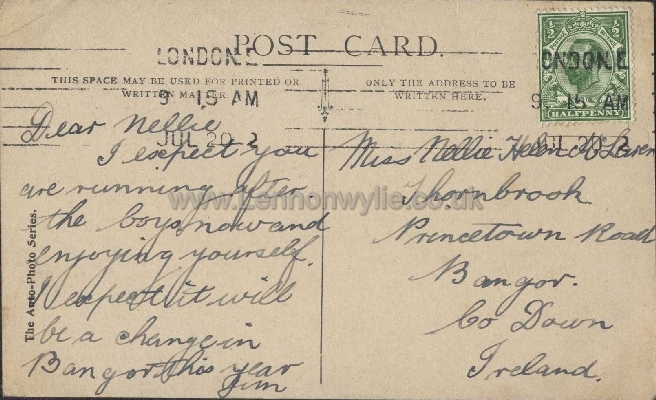 POST CARD.
THIS SPACE MAY BE USED FOR PRINTED OR
WRITTEN MATTER
ONLY THE ADDRESS TO BE
WRITTEN HERE.
LONDON. E
9 15 AM
JUL 20 2
ONDON. E
9 15 AM
JUL 20 2
1/2 1/2
HALFPENNY
Dear Nellie
I expect you
are running after
the boys now and
enjoying yourself.
I expect it will
be a change in
Bangor this year
Jim
Miss Nellie Helen
Thornbrook
Princetown Road
Bangor.
Co Down
Ireland.
The Auto-Photo Series.
www.Lennonwylie.co.uk